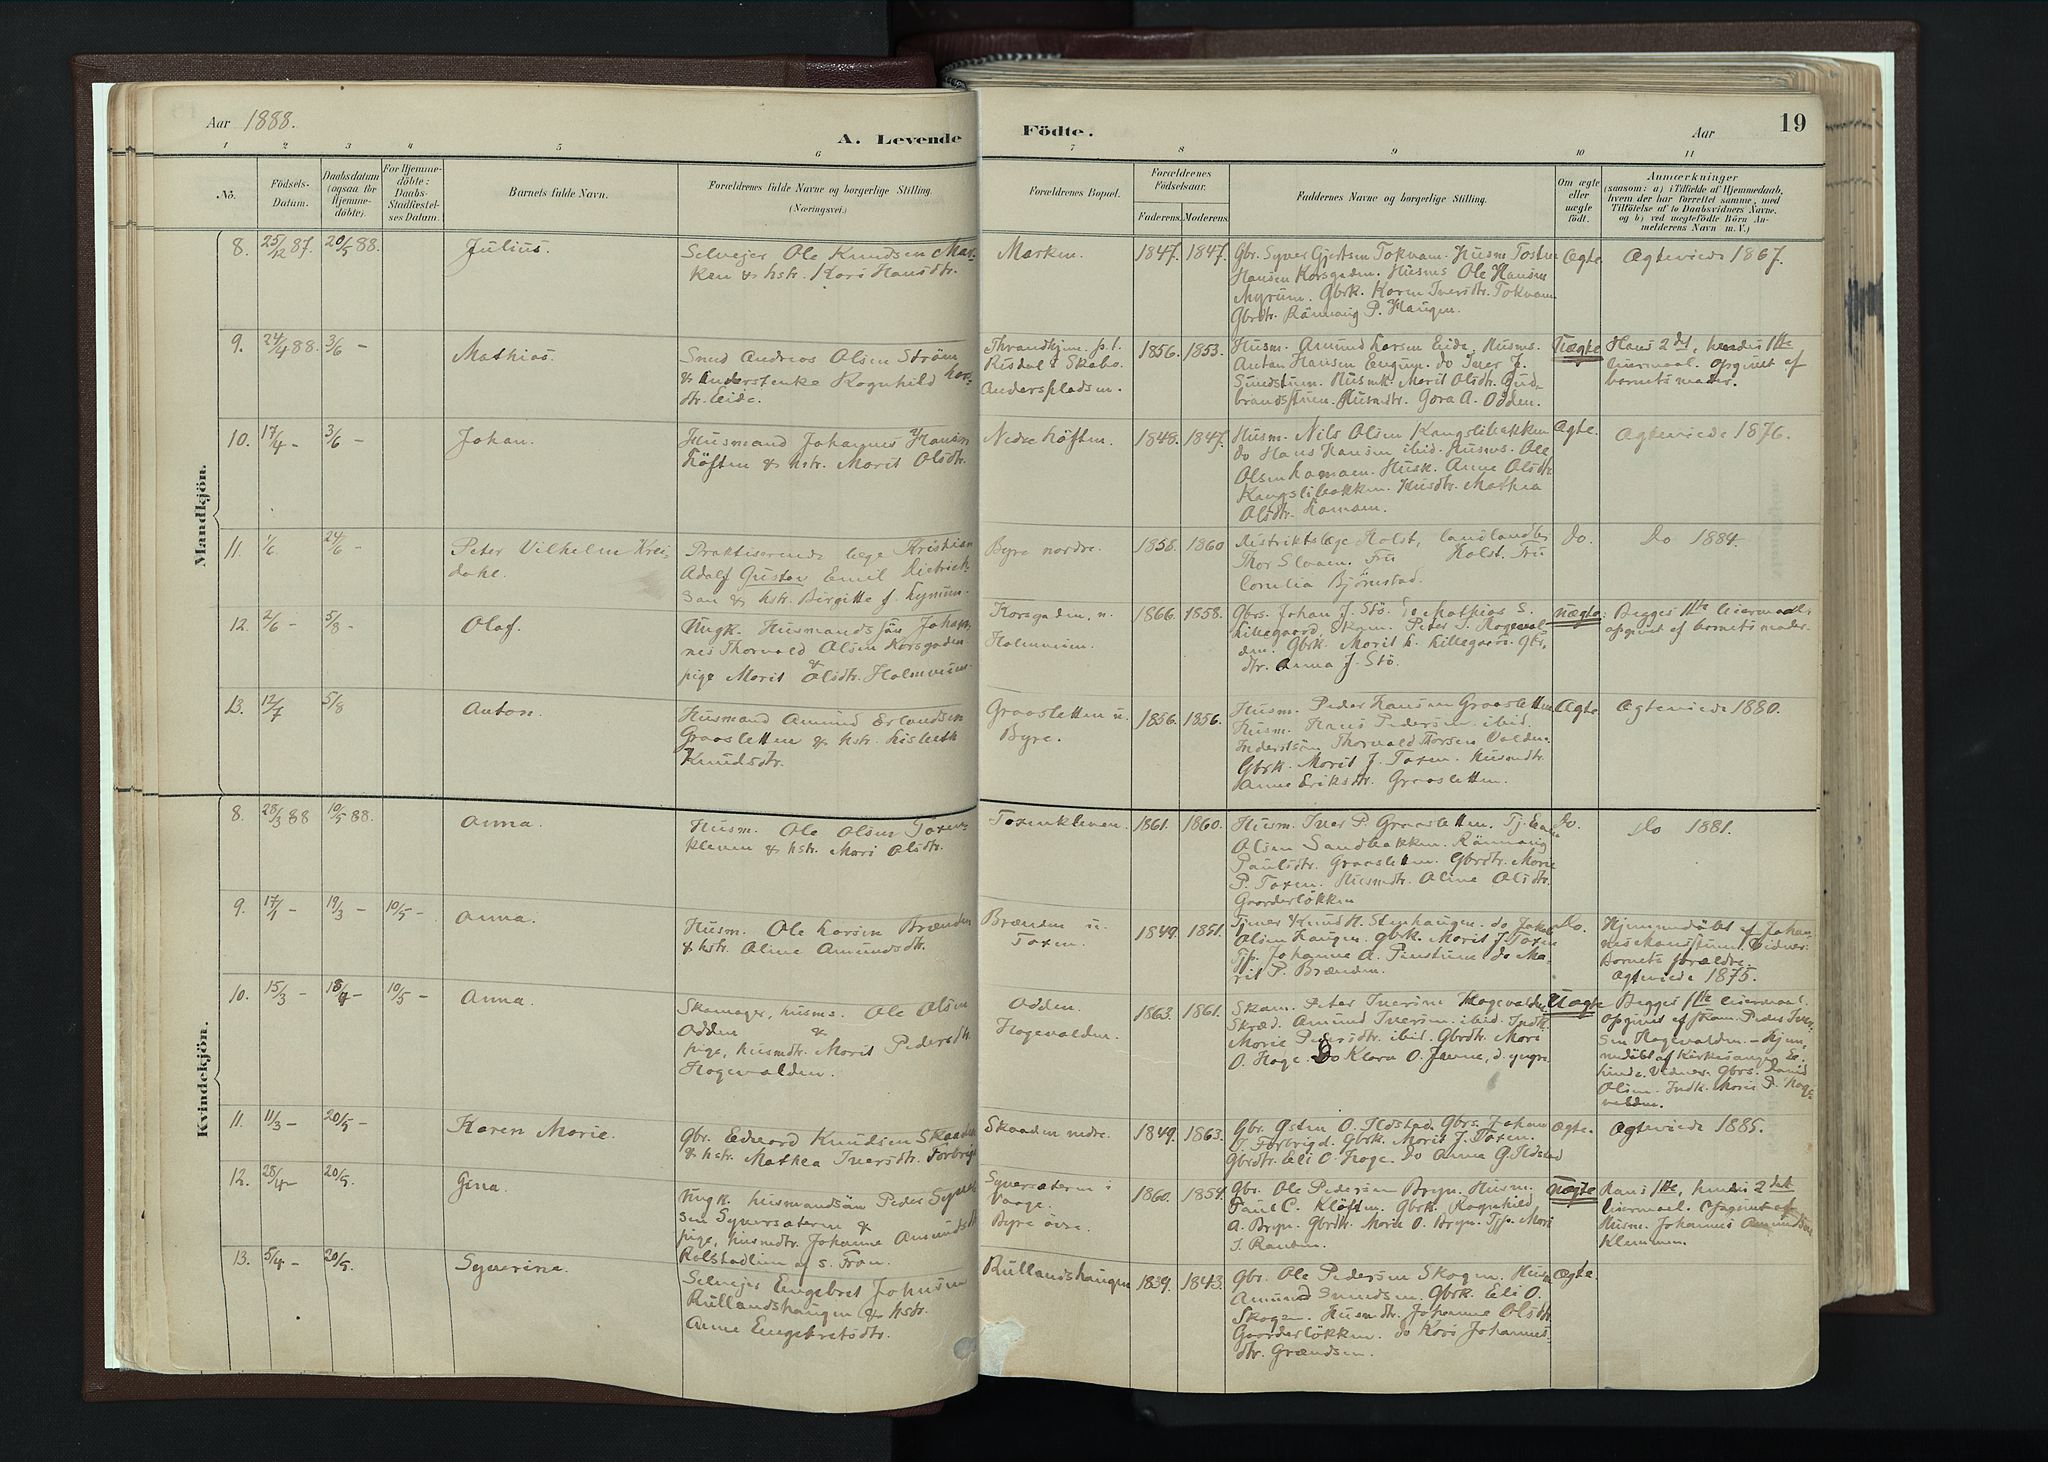 Aar 1888.
A. Levende
Födte.
Aar
19
1 2 3 4 5 6 7 8 9 10 11
No.
Födsels-
Datum.
Daabsdatum
(ogsaa for
Hjemme-
döbte).
For Hjemme-
döbte:
Daabs-
Stadfæstel-
ses Datum.
Barnets fulde Navn.
Forældrenes fulde Navne og borgerlige Stilling.
(Næringsvei.)
Forældrenes Bopæl.
Forældrenes
Födselsaar.
Faderens. Moderens.
Faddernes Navne og borgerlige Stilling.
Om ægte
eller
uægte
födt.
Anmærkninger
(saasom: a) i Tilfælde af Hjemmedaab,
hvem der har forrettet samme, med
Tilföielse af to Daabsvidners Navne,
og b) ved uægtefödte Börn An-
melderens Navn m. V.)
Mandkjön.
8. 25/12 87. 20/5 88.
Julius.
Selveier Ole Knudsen Mar-
ken & hstr. Kari Hansdtr.
Marken.
1847. 1847.
Gbr. Syver Gjertsen Tokvam. Husm. Tosten
Hansen Korsgaden. Husms. Ole Hansen
Myrum. Gbrk. Karen Iversdtr. Tokvam
Gbrdtr. Rönnaug P. Haugen.
Ægte
Ægteviede 1867.
9. 24/4 88. 3/6 -
Mathias.
Sned. Andreas Olsen Ström
& Enderstenke Ragnhild Lars-
dtr. Eide.
Thrandhjem p.t.
Risdal i Skabo.
Andersplads
1856. 1853.
Husm. Amund Larsen Eide. Husms.
Anton Hansen Engum. do Iver J.
Sundstuen. Husmk. Marit Olsdtr. Gud-
brandsstuen. Husmdtr. Gora A. Odden.
Uægte
Hans 2det, hendes 1ste
leiermaal. Opgivet af
barnets moder.
10. 17/4 - 3/6 -
Johan.
Husmand Johannes Hansen
Löften & hstr. Marit Olsdtr.
Nedre Löften.
1848. 1847.
Husm. Nils Olsen Kongslibakken
do Hans Hansen ibid. Husms. Ole
Olsen Lomoen. Husk. Anne Olsdtr.
Kongslibakken. Husdtr. Mathea
Olsdtr. Lomoen.
Ægte.
Ægteviede 1876.
11. 1/6 24/6 -
Peter Vilhelm Krei-
dahl.
Praktiserende læge Kristian
Adolf Gustav Emil Dietrich-
son & hstr. Birgitte f. Lynum.
Byre nordre.
1858. 1860
Distriktslæge Holst, landhandler
Thor Slaaen. Fru Holst. Fru
Cornelia Björnstad.
Do.
Do 1884.
12. 2/6 - 5/8 -
Olaf.
Ungk. Husmandssön Johan-
nes Thorvald Olsen Korsgaden
&
pige Marit Olsdtr. Holmveien
Korsgaden, n.
Holmveien.
1866. 1858.
Gbrs. Johan J. Stö. Do Mathias S.
Lillegaard. Skom. Peter I. Hageval-
den. Gbrk. Marit L. Lillegaard. Gbr-
dtr. Anna J. Stö.
Uægte.
Begges 1ste leiermaal
opgivet af barnets moder.
13. 12/7 5/8
Anton.
Husmand Amund Erlandsen
Graasletten & hstr. Lisbeth
Knudsdtr.
Graasletten u.
Byre.
1856. 1856.
Husm. Peder Hansen Graasletten
Husm. Hans Pedersen ibid.
Inderstsön Thorvald Thorsen Valden.
Gbrk. Marit J. Toxen. Husmdtr.
Anne Eriksdtr. Graasletten.
Ægte
Ægteviede 1880.
Kvindekjön.
8. 28/3 88 10/5 88.
Anna.
Husm. Ole Olsen Toxen-
kleven & hstr. Mari Olsdtr.
Toxenkleven.
1861. 1860.
Husm. Iver P. Graasletten. Tj. Even
Olsen Sandbakken. Rönnaug
Paulsdtr. Graasletten. Gbrdtr. Marie
P. Toxen. Husmdtr. Oline Olsdtr.
Gaarderlökken
Do.
Do 1881.
9. 17/1 - 19/3 - 10/5 -
Anna.
Husm. Ole Larsen Brænden
& hstr. Oline Amundsdtr.
Brænden u.
Toxen.
1849. 1851.
Tjener Knud H. Stenhaugen. do Jakob
Olsen Haugen. Gbrk. Marit J. Toxen
Tjp. Johanne A. Prestuen do Ma-
rit P. Brænden.
Do.
Hjemmedöbt af Johan-
nes Monsstuen. Vidner:
Barnets forældre.
Ægteviede 1875.
10. 15/3 - 18/4 - 10/5 -
Anna.
Skomager, husms. Ole Olsen
Odden &
pige, husmdtr. Marit Pedersdtr.
Hagevalden.
Odden.
Hagevalden.
1863. 1861.
Skom. Peter Iversen Hagevalden.
Skræd. Amund Iversen ibid. Indk.
Marie Pedersdtr. ibid. Gbrdtr. Mari
O. Hage. Do Klara O. Jevne, d. yngre
Uægte
Begges 1ste leiermaal
opgivet af skom. Peder Iver-
sen Hagevalden. - Hjem-
medöbt af Kirkesanger
Vidner. Gbrs. David
Olsen. Indk. Marie P. Hage-
valden.
11. 11/3 - 20/5 -
Karen Marie.
Gbr. Edvard Knudsen Skaaden
& hstr. Mathea Iversdtr. Forbrigd
Skaaden nedre.
1849. 1863.
Gbr. Østen O. Ildstad. Gbrs. Johan
I. Forbrigd. Gbrk. Marit J. Toxen.
Gbrdtr. Eli O. Hage. Do Anne G. Ildstad
Ægte.
Ægteviede 1885.
12. 28/4 - 20/5.
Gina.
Ungk. husmandssön Peder Syver-
sen Syversæteren &
pige, husmdtr. Johanne Amundsdtr.
Rolstadlien af s. Fron.
Syversæteren i
Vaage.
Byre övre.
1860. 1854.
Gbr. Ole Pedersen Bryn. Husm.
Paul C. Klöften. Gbrk. Ragnhild
A. Bryn. Gbrdtr. Marit O. Bryn. Tjp. Mari
J. Ranten.
Uægte
Hans 1ste, hendes 2det
leiermaal. Opgivet af
Husm. Johannes Amundsen
Klemmen.
13. 5/4 - 20/5.
Syverine.
Selveier Engebret Johnsen
Rullandshaugen & hstr.
Anne Engebretsdtr.
Rullandshaugen
1839. 1843.
Gbr. Ole Pedersen Skogen. Husm.
Amund Smedsen. Gbrk. Eli O.
Skogen. Husmdtr. Johanne Olsdtr.
Gaarderlökken. do Kari Johannes-
dtr. Grændsen.
Ægte.